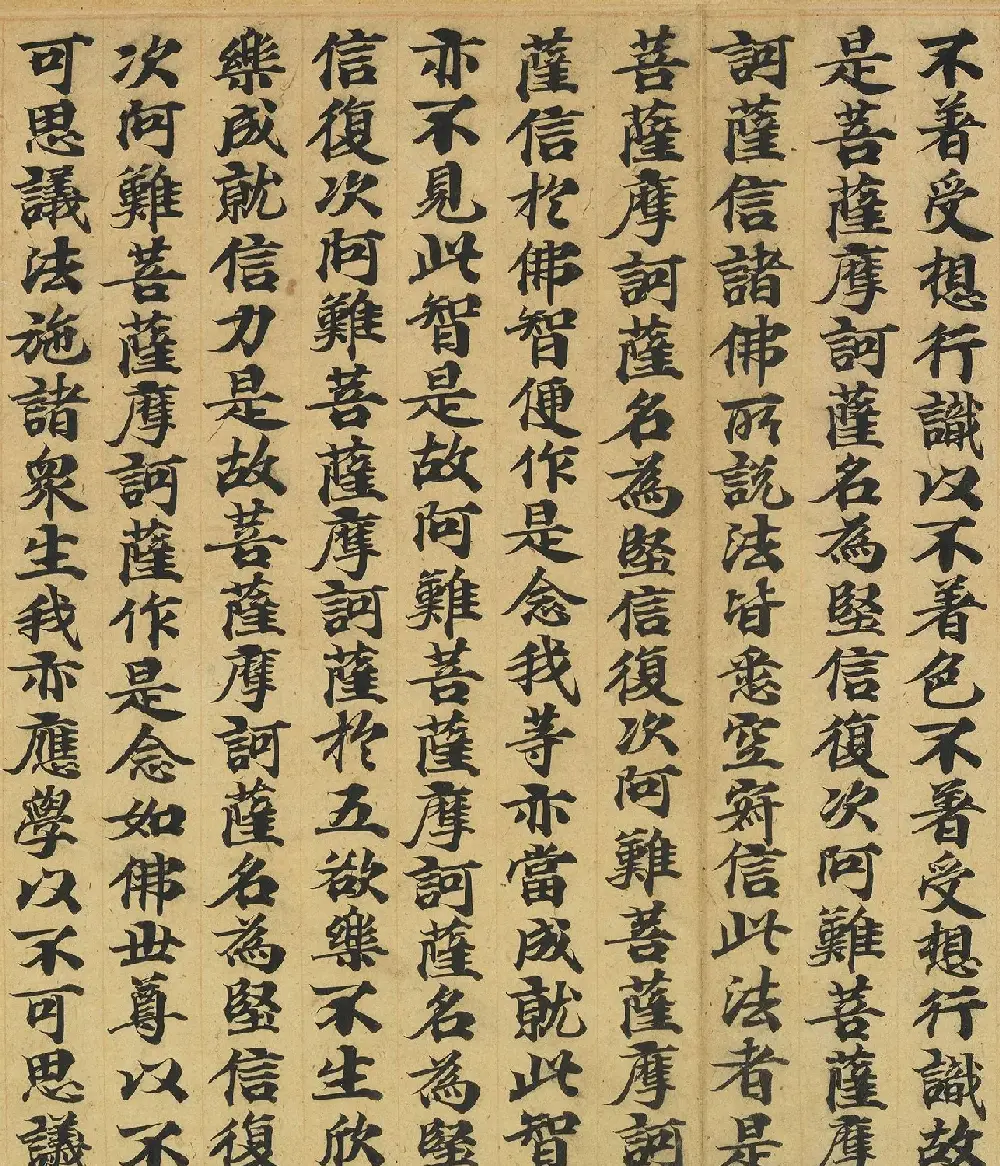 不著受想行識以不著色不著受想行識故
是菩薩摩訶薩名為堅信復次阿難菩薩摩
訶薩信諸佛所說法皆悉空寂信此法者是
菩薩摩訶薩名為堅信復次阿難菩薩摩訶
薩信於佛智便作是念我等亦當成就此智
亦不見此智是故阿難菩薩摩訶薩名為堅
信復次阿難菩薩摩訶薩於五欲樂不生欣
樂成就信力是故菩薩摩訶薩名為堅信復
次阿難菩薩摩訶薩作是念如佛世尊以不
可思議法施諸眾生我亦應學以不可思議